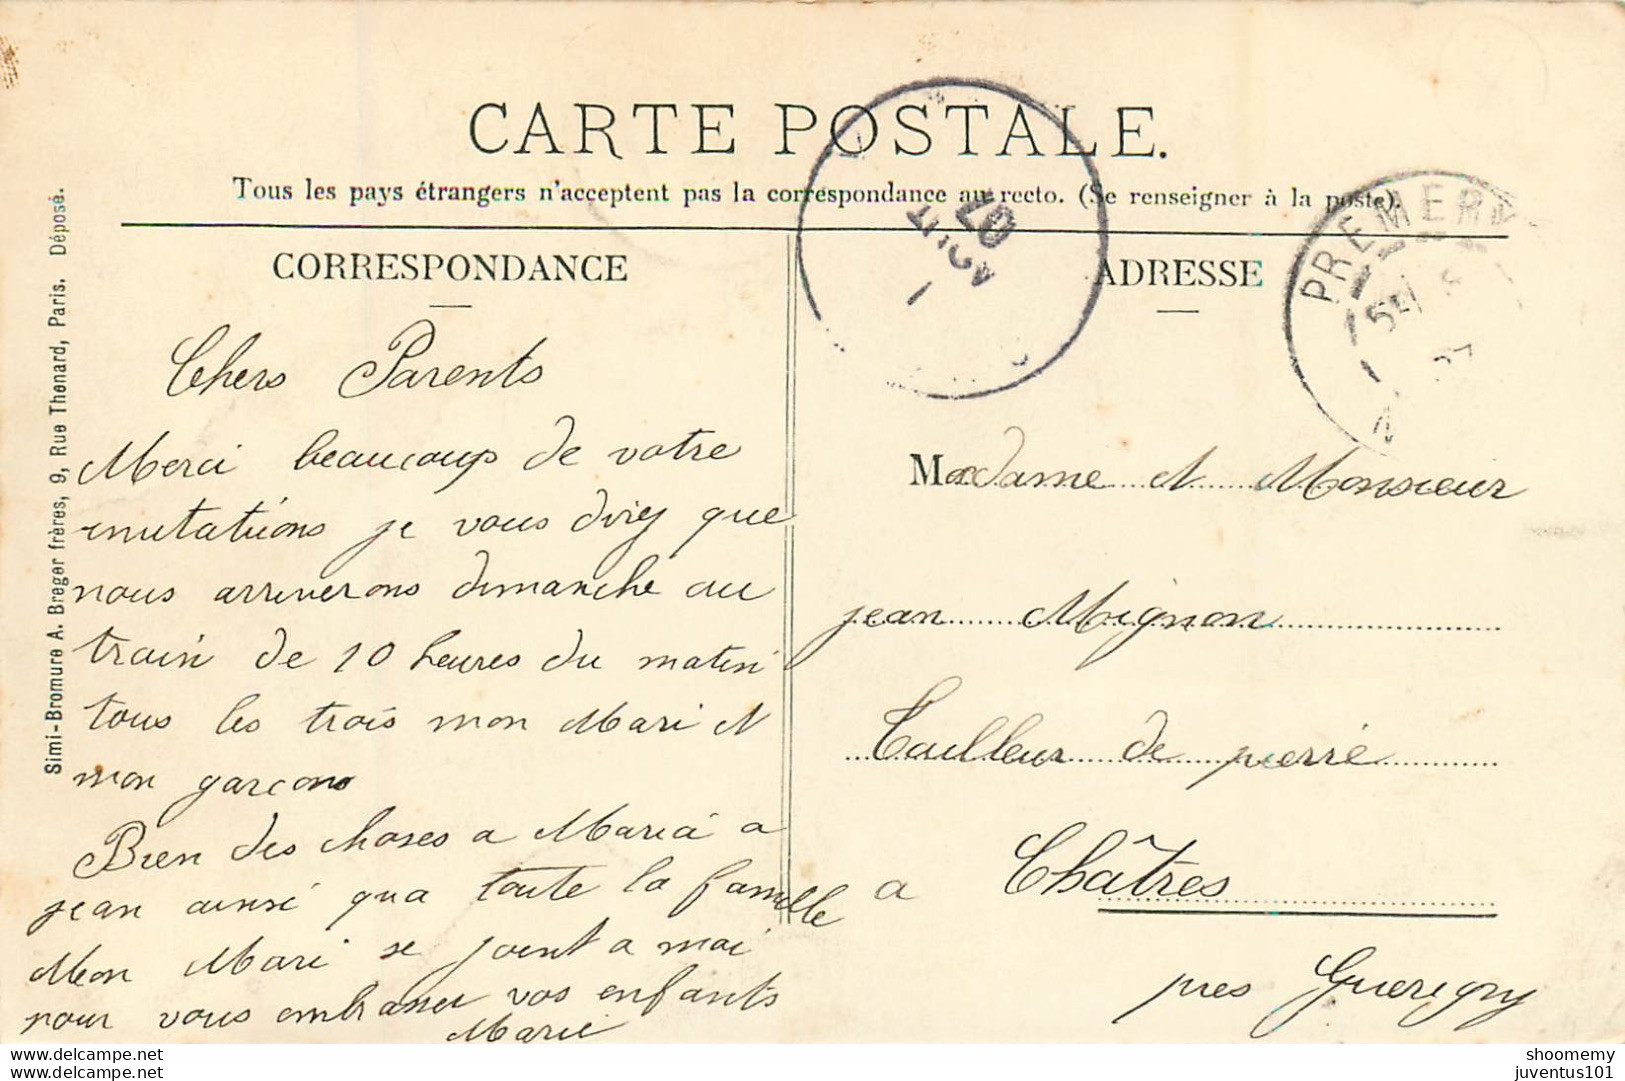 CARTE POSTALE.
Tous les pays étrangers n'acceptent pas la correspondance au recto. (Se renseigner à la poste).
CORRESPONDANCE
ADRESSE
Simi-Bromure A. Breger frères, 9, Rue Thenard, Paris. Déposé.
1 AOUT 07
PREMERY
Chers Parents
Merci beaucoup de votre
invitations je vous direz que
nous arriverons dimanche au
train de 10 heures du matin
tous les trois mon Mari et
mon garcons
Bien des choses a Maria a
jean ainsi qua toute la famille
Mon Mari se joint a moi
pour vous embrasser vos enfants
Marie
Madame et Monsieur
jean Mignon
Tailleur de pierre
a Châtres
pres Guerigny
www.delcampe.net
https://www.delcampe.net
shoomemy
juventus101